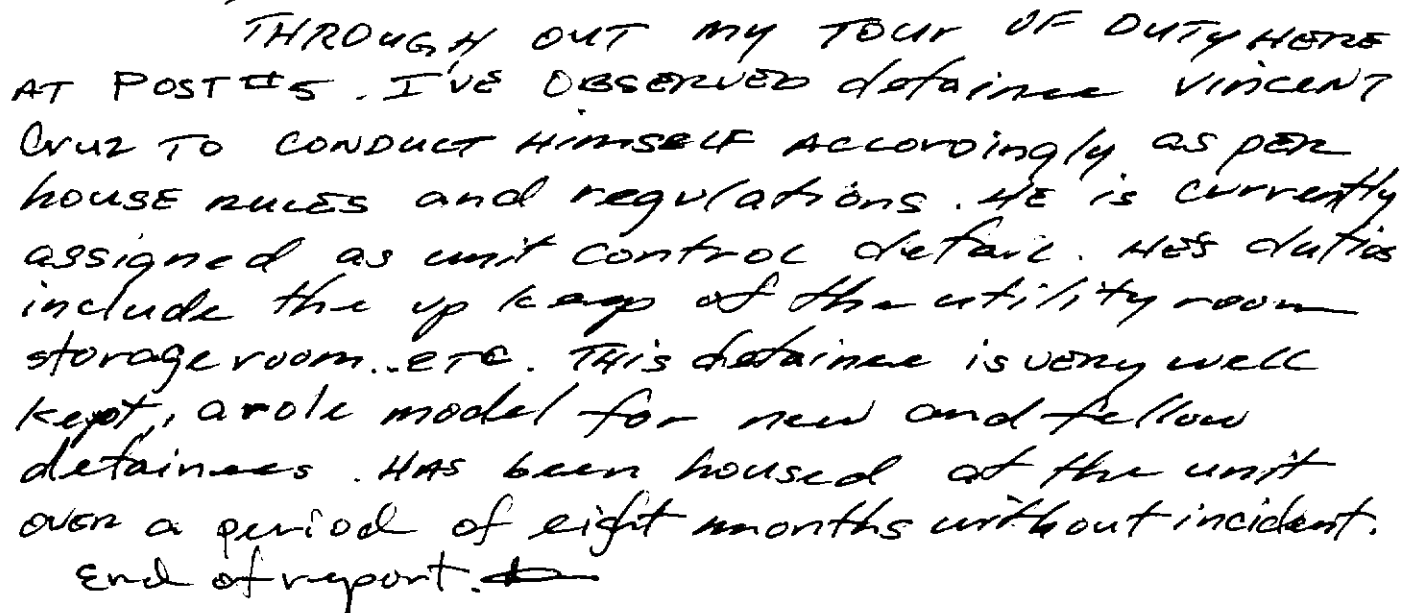 THROUGH OUT MY TOUR OF DUTY HERE
AT POST #5. I'VE OBSERVED detainee VINCENT
Cruz TO CONDUCT HIMSELF ACCORDINGLY as PER
house RULES and regulations. HE is currently
assigned as unit control detail. HE'S duties
include the up keep of the utility room
storage room..ETC. THis detainee is VERY well
kept, a role model for new and fellow
detainees. HAS been housed at the unit
OVER a period of eight months without incident.
End of report.